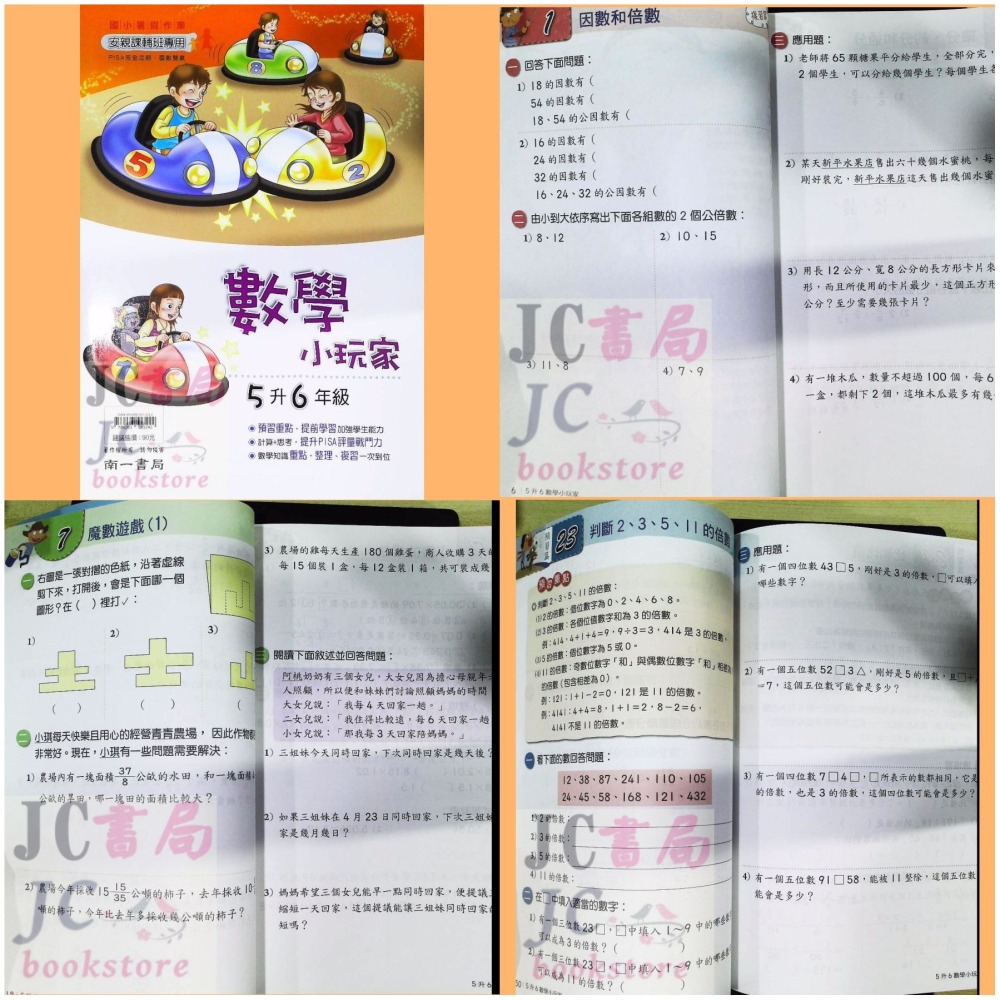 國小暑假作業
安親課輔班專用
5
8
2
1
數學
小玩家
5升6年級
預習重點，提前學習加強學生能力
計算+思考，提升PISA評量戰鬥力
數學知識重點，整理、複習一次到位
建議售價：90元
南一書局
1 因數和倍數
一 回答下面問題：
1) 18 的因數有 (
54 的因數有 (
18、54 的公因數有 (
2) 16 的因數有 (
24 的因數有 (
32 的因數有 (
16、24、32 的公因數有 (
二 由小到大依序寫出下面各組數的 2 個公倍數：
1) 8、12
2) 10、15
3) 11、8
4) 7、9
6 5升6數學小玩家
三 應用題：
1) 老師將 65 顆糖果平分給學生，全部分完，
2 個學生，可以分給幾個學生？每個學生
2) 某天新平水果店售出六十幾個水蜜桃，每
剛好裝完，新平水果店這天售出幾個水蜜
3) 用長 12 公分、寬 8 公分的長方形卡片來
形，而且所使用的卡片最少，這個正方形
公分？至少需要幾張卡片？
4) 有一堆木瓜，數量不超過 100 個，每 6
一盒，都剩下 2 個，這堆木瓜最多有幾
JC書局
JC
bookstore
7 魔數遊戲 (1)
一 右圖是一張對摺的色紙，沿著虛線
剪下來，打開後，會是下面哪一個
圖形？在（ ）裡打✓：
1)
2)
3)
( )
( )
( )
二 小琪每天快樂且用心的經營青青農場，因此作物
非常好。現在，小琪有一些問題需要解決：
1) 農場內有一塊面積 37/8 公畝的水田，和一塊面積
公畝的旱田，哪一塊田的面積比較大？
2) 農場今年採收 15 15/35 公噸的柿子，去年採收 10
噸的柿子，今年比去年多採收幾公噸的柿子？
3) 農場的雞每天生產 180 個雞蛋，商人收購 3 天的
每 15 個裝 1 盒，每 12 盒裝 1 箱，共可裝成幾
三 閱讀下面敘述並回答問題：
阿桃奶奶有三個女兒，大女兒因為擔心母親年
人照顧，所以便和妹妹們討論照顧媽媽的時間
大女兒說：「我每 4 天回家一趟。」
二女兒說：「我住得比較遠，每 6 天回家一趟
小女兒說：「那我每 3 天回家陪媽媽。」
1) 三姐妹今天同時回家，下次同時回家是幾天後？
2) 如果三姐妹在 4 月 23 日同時回家，下次三姐妹
家是幾月幾日？
3) 媽媽希望三個女兒能早一點同時回家，便提議
縮短一天回家，這個提議能讓三姐妹同時回家
短嗎？
5升6
JC書局
JC
bookstore
預習區 23 判斷 2、3、5、11 的倍數
判斷 2、3、5、11 的倍數：
(1) 2 的倍數：個位數字為 0、2、4、6、8。
(2) 3 的倍數：各個位值數字和為 3 的倍數。
例：414，4＋1＋4＝9，9÷3＝3，414 是 3 的倍數。
(3) 5 的倍數：個位數字為 5 或 0。
(4) 11 的倍數：奇數位數字「和」與偶數位數字「和」相差為
的倍數（包含相差為 0）。
例：121：1＋1－2＝0，121 是 11 的倍數。
例：4141：4＋4＝8，1＋1＝2，8－2＝6，
4141 不是 11 的倍數。
一 看下面的數回答問題：
12、38、87、241、110、105
24、45、58、168、121、432
1) 2 的倍數：
2) 3 的倍數：
3) 5 的倍數：
4) 11 的倍數：
二 在□中填入適當的數字：
1) 有一個三位數 23□，□中填入 1～9 中的哪些
可以成為 3 的倍數？（
2) 有一個三位數 23□，□中填入 1～9 中的哪些
可以成為 11 的倍數？（
50 5升6數學小玩家
三 應用題：
1) 有一個四位數 43□5，剛好是 3 的倍數，□可以填入
哪些數字？
2) 有一個五位數 52□3△，剛好是 5 的倍數，且□＋△
＝7，這個五位數可能會是多少？
3) 有一個四位數 7□4□，□所表示的數都相同，它是
的倍數，也是 3 的倍數，這個四位數可能會是多少？
4) 有一個五位數 91□58，能被 11 整除，這個五位數
能會是多少？
5升6數學小玩
JC書局
JC
bookstore